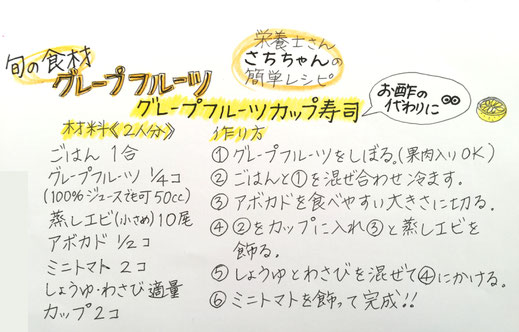 旬の食材
グレープフルーツ
栄養士さん
さちちゃんの
簡単レシピ
グレープフルーツカップ寿司
お酢の
代わりに
材料《2人分》
ごはん 1合
グレープフルーツ 1/4コ
(100%ジュースでも可50cc)
蒸しエビ(小さめ)10尾
アボカド 1/2コ
ミニトマト 2コ
しょうゆ・わさび 適量
カップ2コ
作り方
①グレープフルーツをしぼる。(果肉入りOK)
②ごはんと①を混ぜ合わせ冷ます。
③アボカドを食べやすい大きさに切る。
④②をカップに入れ③と蒸しエビを
飾る。
⑤しょうゆとわさびを混ぜて④にかける。
⑥ミニトマトを飾って完成!!